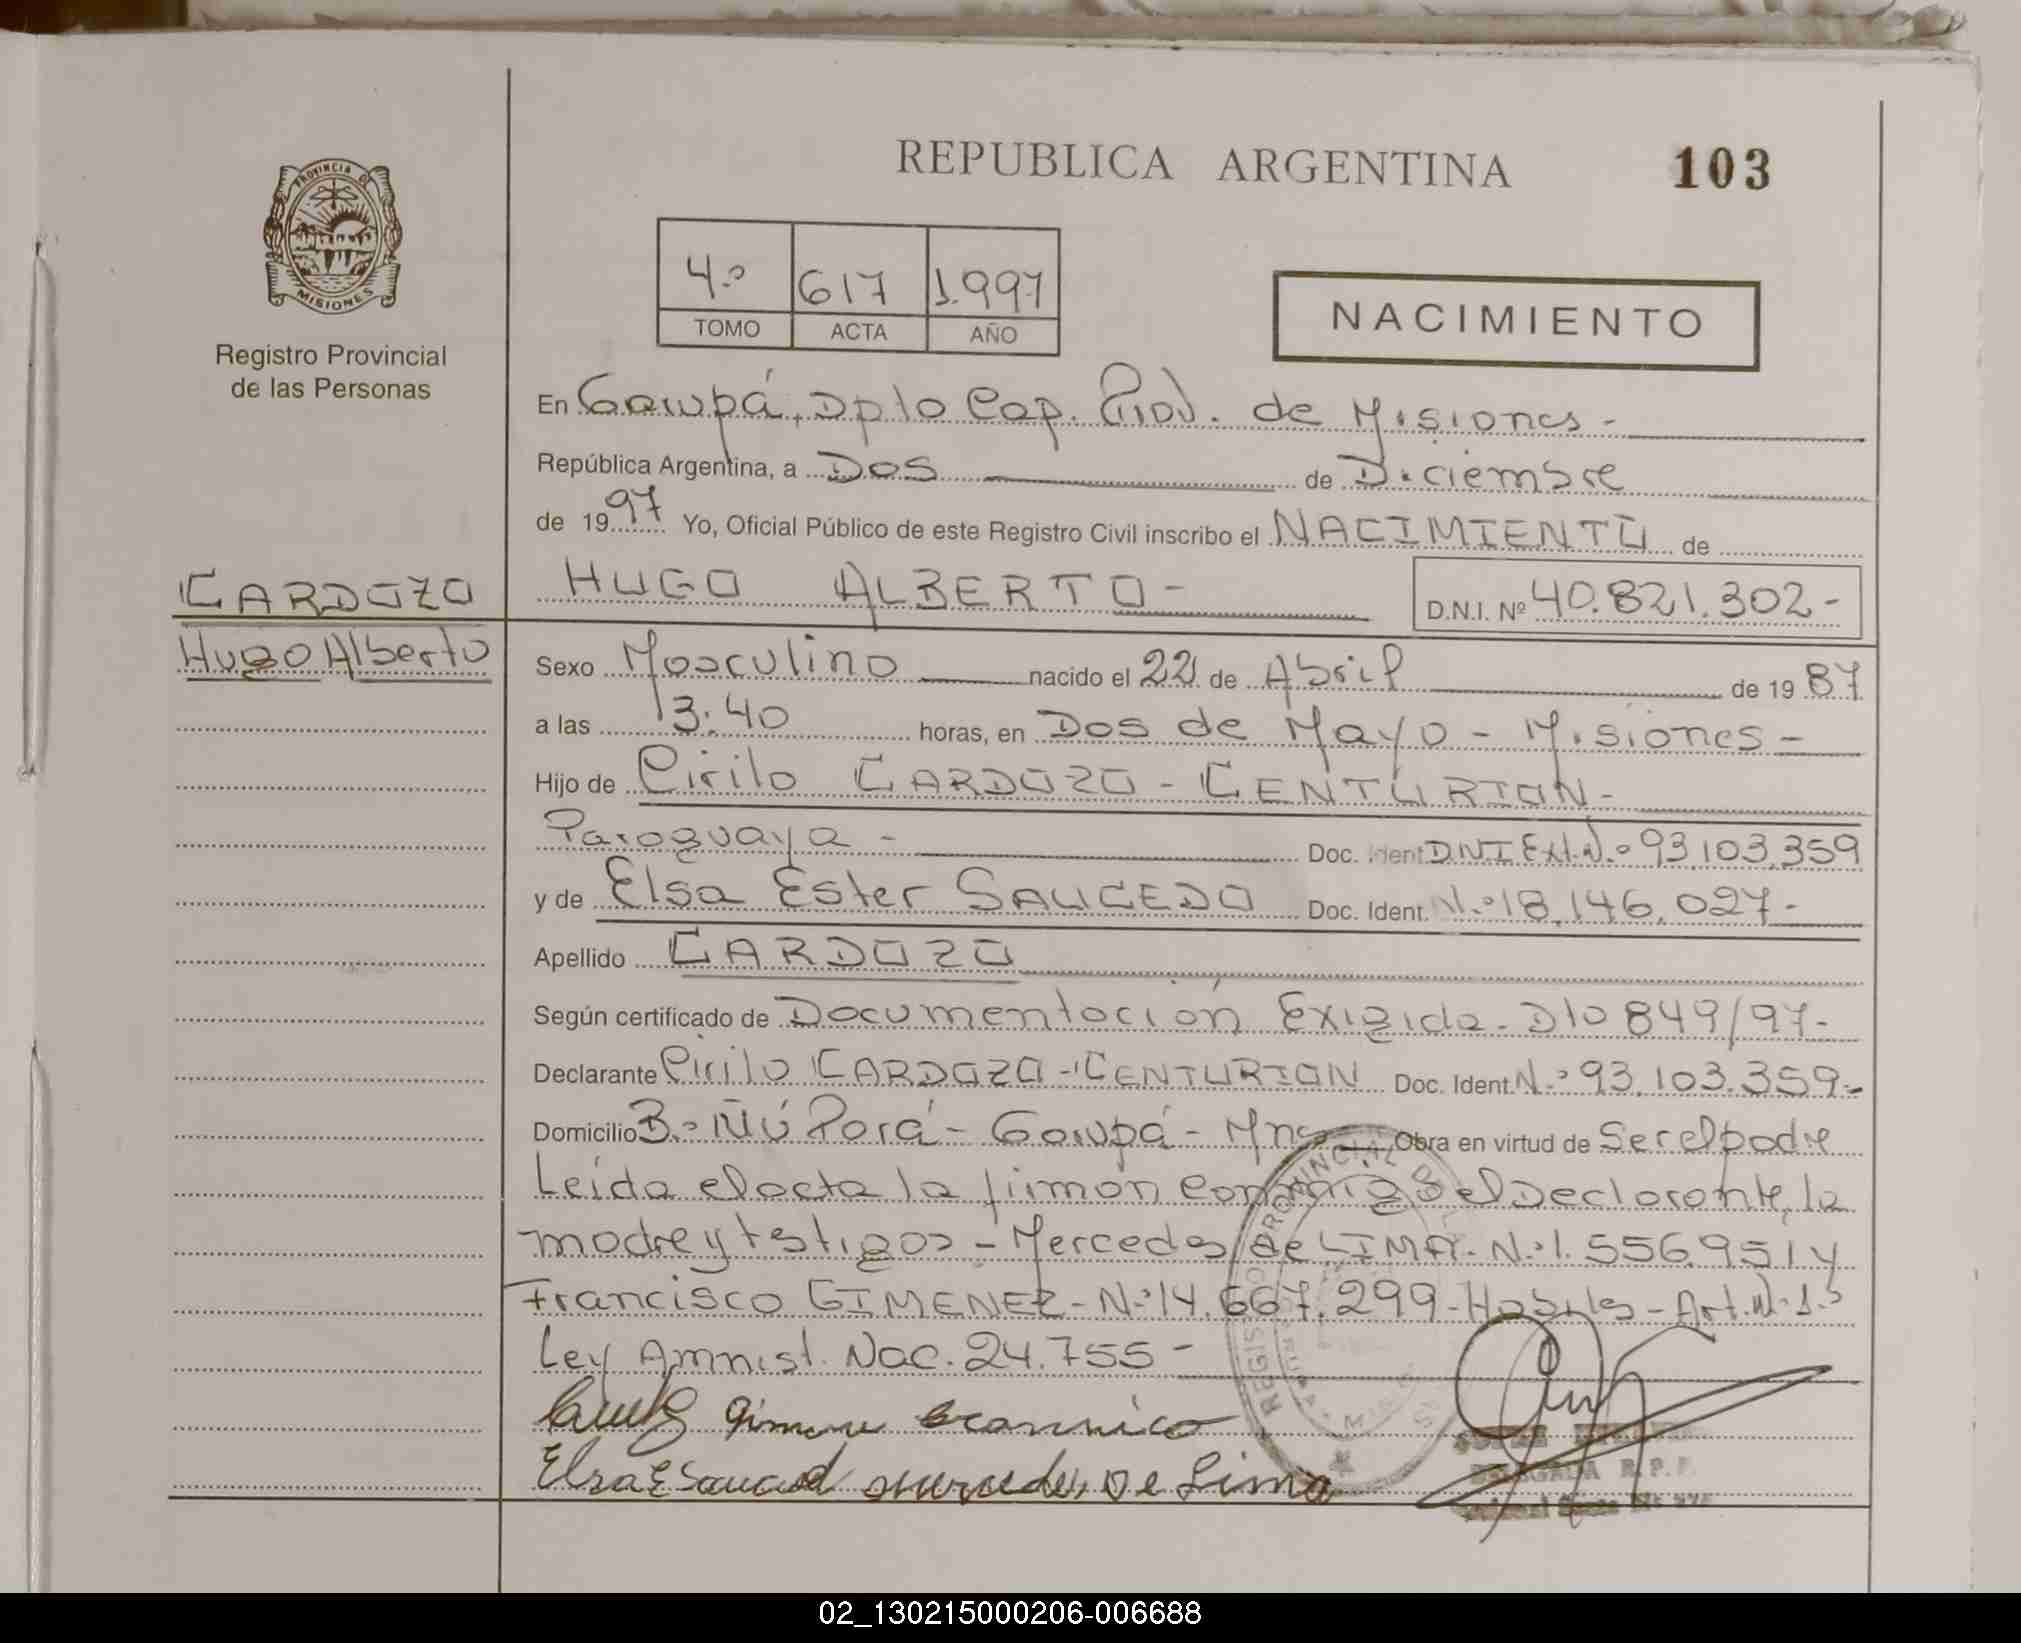 REPUBLICA ARGENTINA
103
PROVINCIA DE
MISIONES
Registro Provincial
de las Personas
4.º 617 1.997
TOMO ACTA AÑO
NACIMIENTO
En Garupá, Dpto Cap. Prov. de Misiones -
República Argentina, a Dos de Diciembre
de 1997 Yo, Oficial Público de este Registro Civil inscribo el NACIMIENTO de
CARDOZO
Hugo Alberto
HUGO ALBERTO - D.N.I. Nº 40.821.302 -
Sexo Masculino nacido el 22 de Abril de 1987
a las 13:40 horas, en Dos de Mayo - Misiones -
Hijo de Cirilo CARDOZO - CENTURION -
Paraguaya - Doc. Ident DNI Ext. N.º 93.103.359
y de Elsa Ester SAUCEDO Doc. Ident. N.º 18.146.027 -
Apellido CARDOZO
Según certificado de Documentación Exigida - Dto 849/97 -
Declarante Cirilo CARDOZO - CENTURION Doc. Ident. N.º 93.103.359 -
Domicilio B.º Ñú Porá - Garupá - Mnes Obra en virtud de Ser el padre
Leída el acta la firman conmigo el Declarante, la
madre y testigos - Mercedes de LIMA - N.º 1.556.951 y
Francisco GIMENEZ - N.º 14.667.299 - Habiles - Art. N.º 1.º
Ley Amnist. Nac. 24.755 -
Elsa E Saucedo Mercedes De Lima
REGISTRO PROVINCIAL DE
DELEGADA R.P.P.
02_130215000206-006688